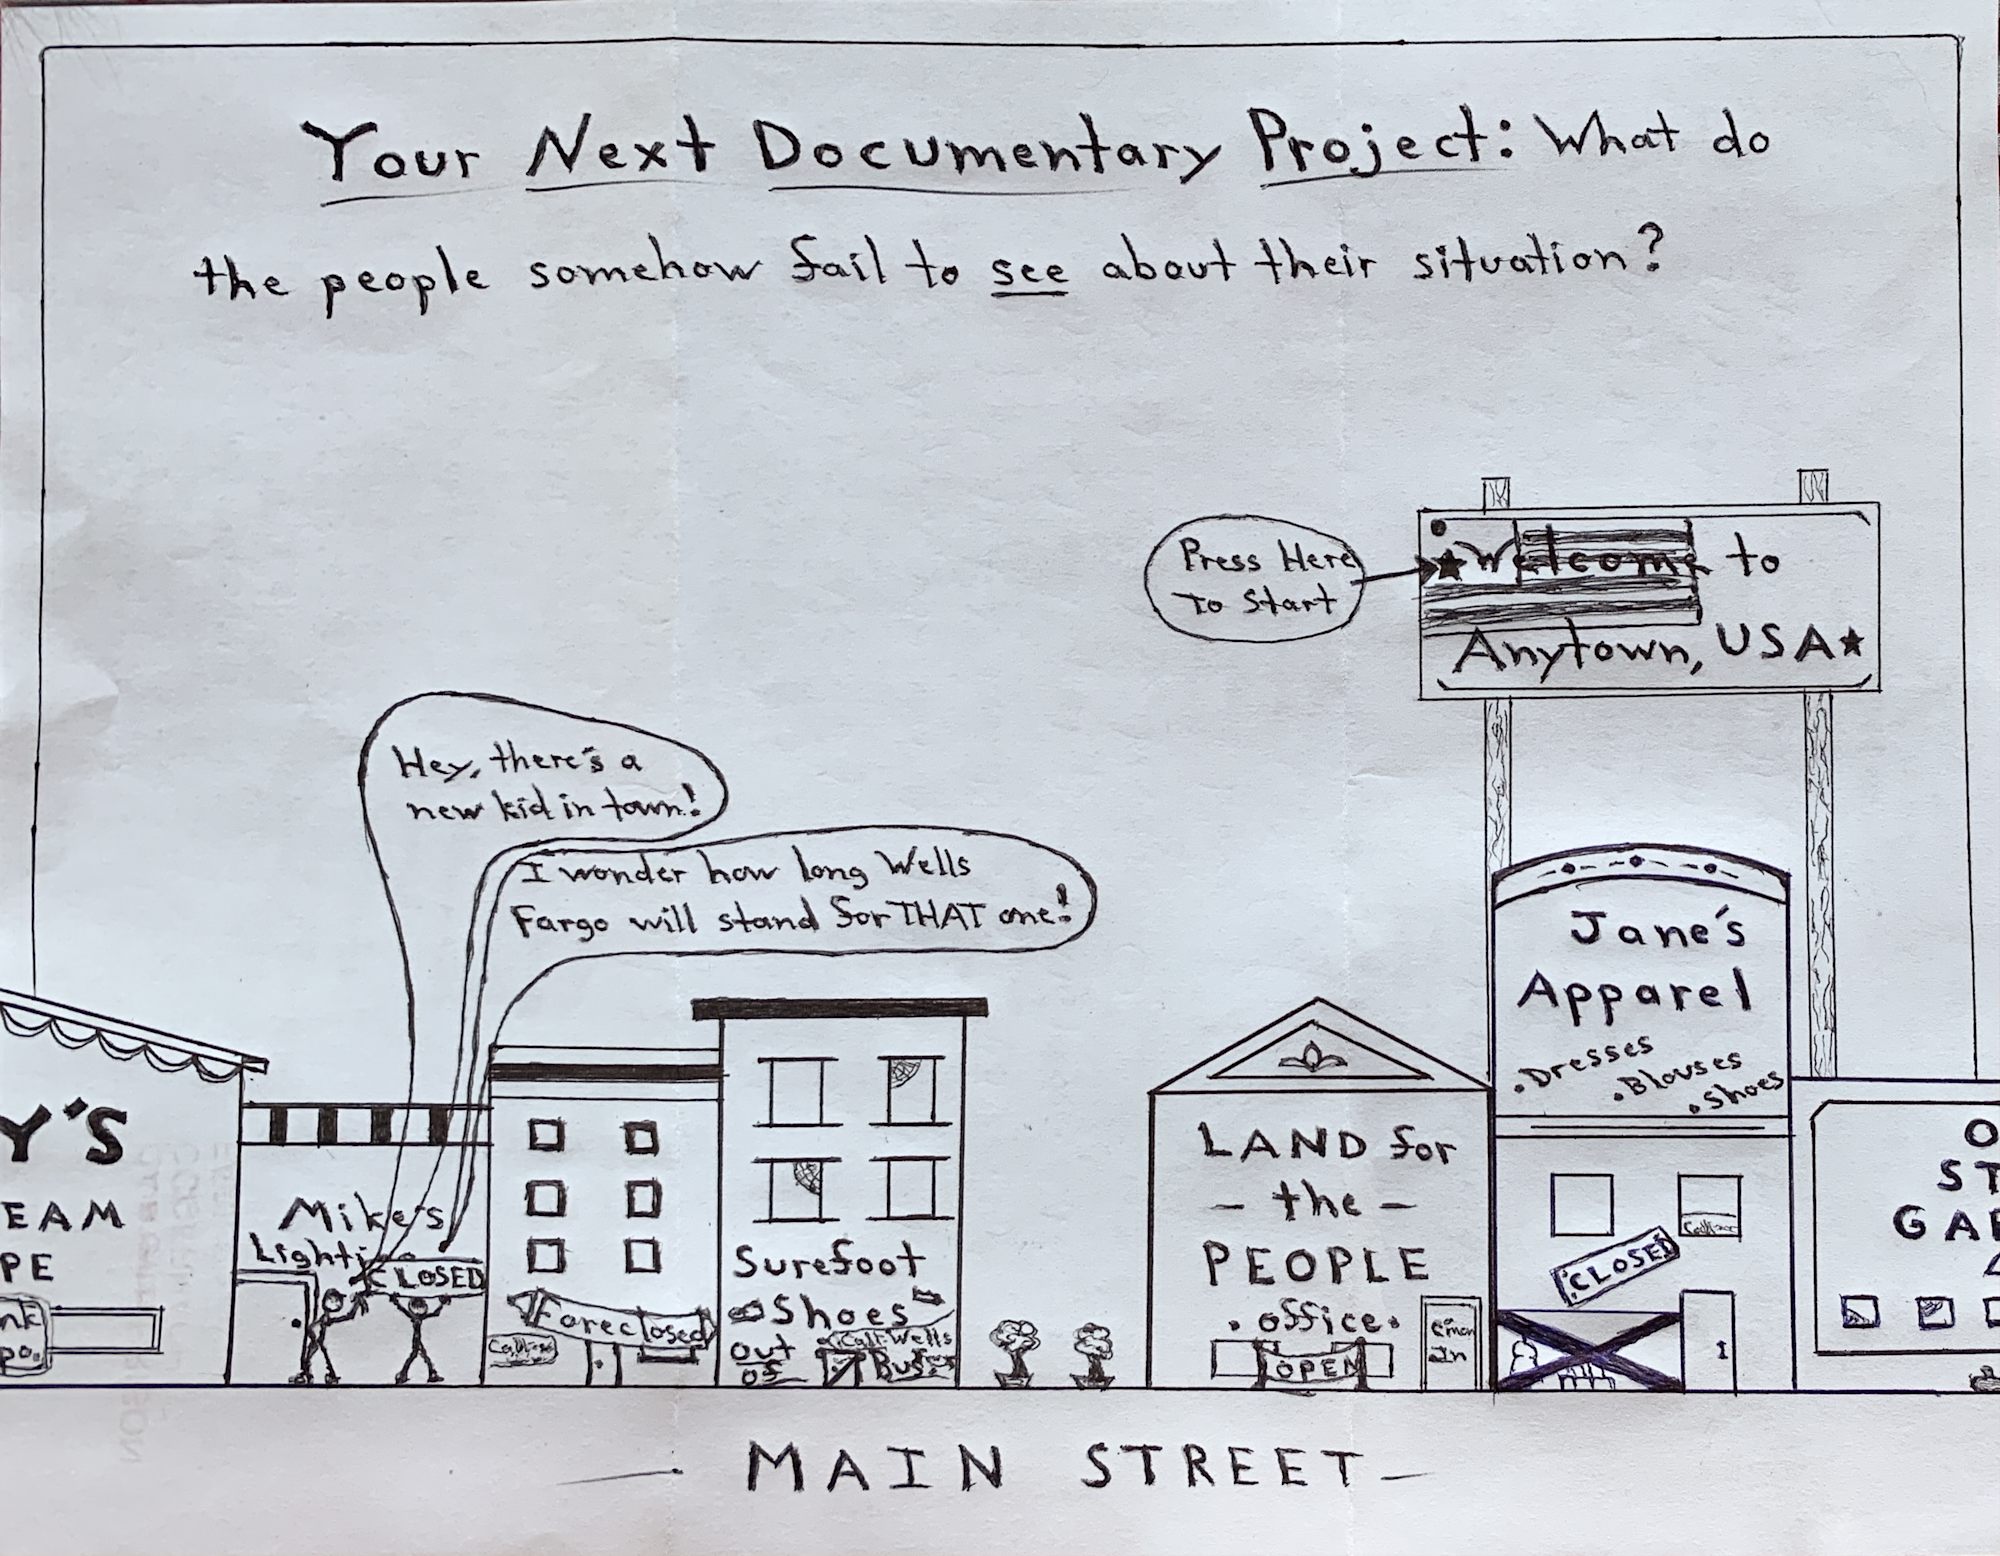 Your Next Documentary Project: What do
the people somehow fail to see about their situation?
Press Here
To Start
Welcome to
Anytown, USA
Hey, there's a
new kid in town!
I wonder how long Wells
Fargo will stand for THAT one!
Y'S
EAM
PE
Mike's
CLOSED
Foreclosed
Surefoot
Shoes
Call Wells
Out
of
Bus.
LAND for
- the -
PEOPLE
. office.
OPEN
C'mon
In
Jane's
Apparel
. Dresses
. Blouses
. Shoes
CLOSED
O
ST
GA
MAIN STREET